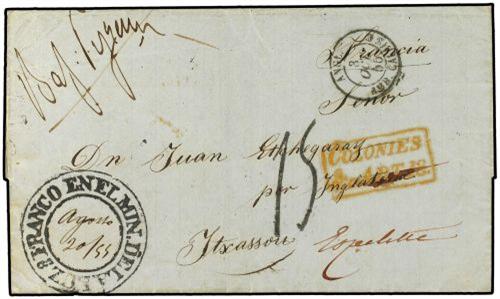 Francia
Señor
Dn Juan Etchegaray
por Inglaterra
Itxassou Espelette
15
COLONIES
& ART. 18.
FRANCO EN EL MIN. DE LA LUZ
Agosto
20/55